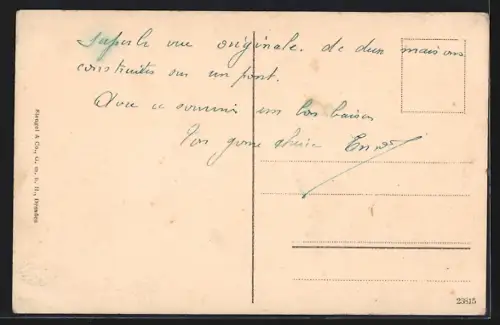 Superbe vue originale de deux maisons
construites sur un pont.
Avec ce souvenir un bon baiser
Ton
Stengel & Co., G. m. b. H., Dresden
23815